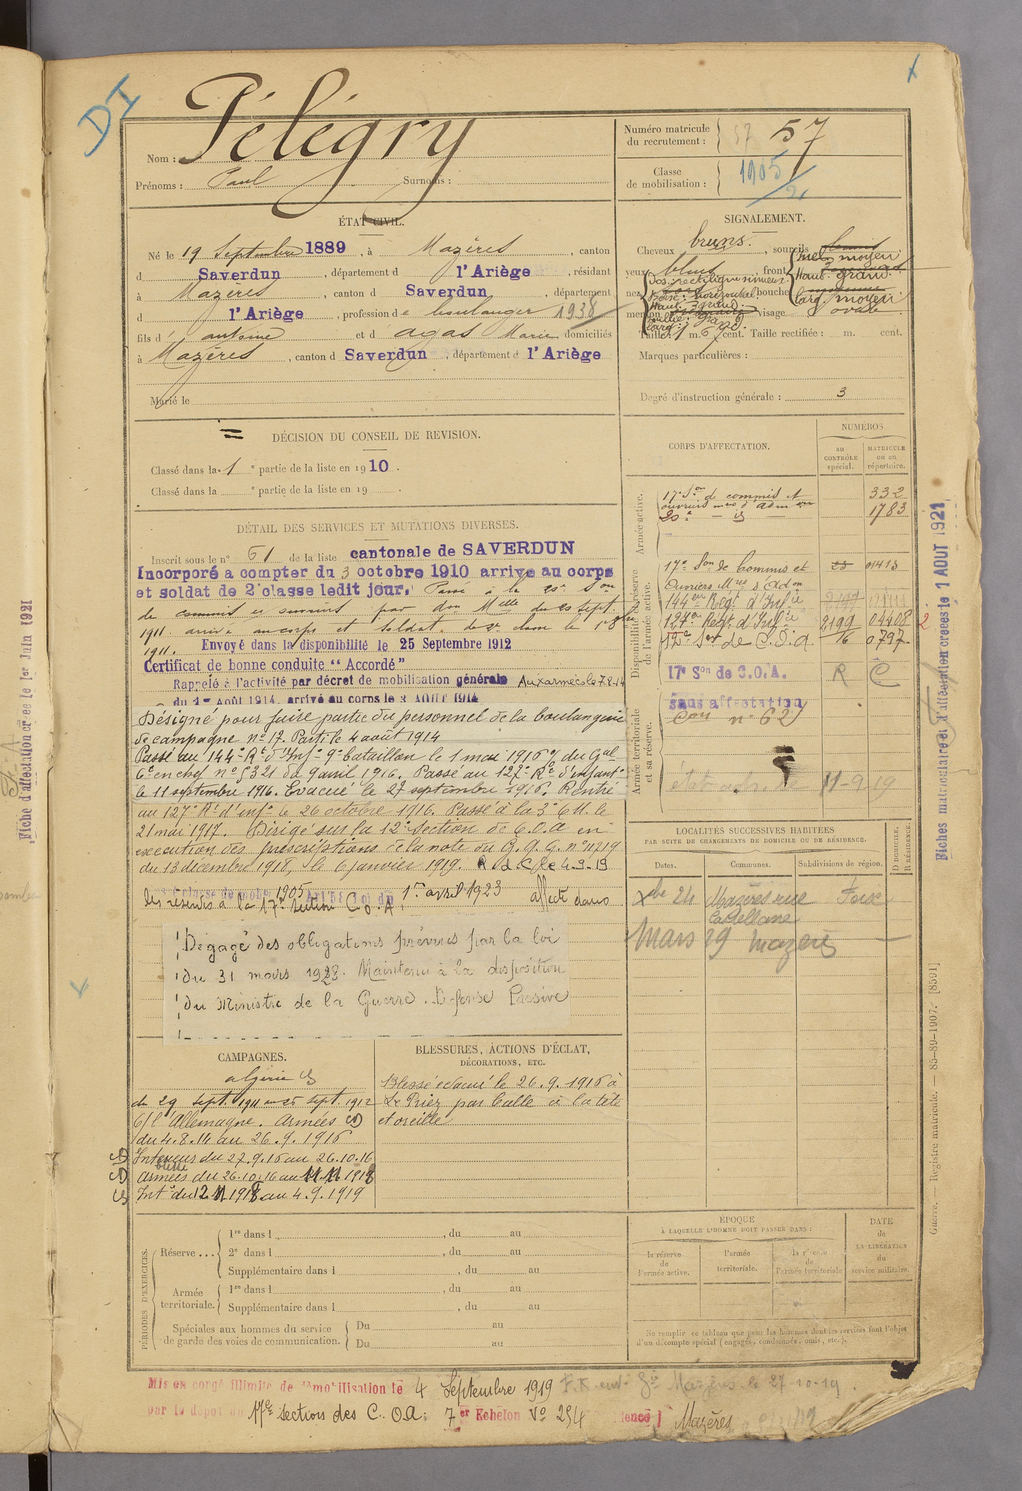 DI
Nom : Pélégry
Prénoms : Paul Surnoms :
Numéro matricule du recrutement : 57 57
Classe de mobilisation : 1905
ÉTAT CIVIL.
Né le 19 Septembre 1889, à Mazères, canton
d Saverdun, département d l'Ariège, résidant
à Mazères, canton d Saverdun, département
d l'Ariège, profession de boulanger 1938
fils d'antoine et d agas Marie domiciliés
à Mazères, canton d Saverdun, département d l'Ariège
Marié le
SIGNALEMENT.
Cheveux bruns, sourcils
yeux bleus, front moyen
Dos: rectiligne sinueux Haut: grand
nez Base: horizontal bouche larg. moyen
menton visage ovale
Taille: 1 m. 6 cent. Taille rectifiée : m. cent.
Marques particulières :
Degré d'instruction générale : 3
DÉCISION DU CONSEIL DE REVISION.
Classé dans la 1e partie de la liste en 1910.
Classé dans la e partie de la liste en 19 .
CORPS D'AFFECTATION.
NUMÉROS
AU CONTRÔLE spécial.
MATRICULE ou au répertoire.
Armée active.
17e Son de commis et 332
ouvriers mres d'adm on
20e - d - 1783
Disponibilité et réserve de l'armée active.
17e Son de Commis et 01413
Ouvriers Mres d'Adon
144eme Régt d'Infie
127e Régt d'Infie 9199 04408
12e Son de C.O.A 16 0797
17e Son de C.O.A. R C
Armée territoriale et sa réserve.
Sans affectation
Con n° 62
11-9-19
DÉTAIL DES SERVICES ET MUTATIONS DIVERSES.
Inscrit sous le n° 61 de la liste cantonale de SAVERDUN
Incorporé a compter du 3 octobre 1910 arrivé au corps
et soldat de 2e classe ledit jour. Passé à la 20e Son
de commis et ouvriers par don Mlle du 20 sept.
1911. arrivé au corps et soldat de 2e classe le 1er 8bre
1911. Envoyé dans la disponibilité le 25 Septembre 1912
Certificat de bonne conduite "Accordé"
Rappelé à l'activité par décret de mobilisation générale Aux armées le 7.8.14
du 1er Août 1914, arrivé au corps le 3 AOUT 1914
Désigné pour faire partie du personnel de la boulangerie
de campagne n° 17. Parti le 4 août 1914
Passé au 144e Rt d'Infie 9e bataillon le 1 mai 1916 du Gal
Ct en chef n° 5321 du 9 avril 1916. Passé au 127e Rt d'Infantie
le 11 septembre 1916. Evacué le 27 septembre 1916. Rentré
au 127e Rt d'Infie le 26 octobre 1916. Passé à la 3e C.M. le
21 mai 1917. Dirigé sur la 12e Section de C.O.A en
exécution des prescriptions de la note du G.Q.G. n° 11719
du 13 décembre 1918, le 6 janvier 1919. R d C le 4.9.19
Classe de mob. 1905 1er avril 1923 affecté dans
les réserves à la 17e section C.O.A.
Dégagé des obligations prévues par la loi
du 31 mars 1928. Maintenu à la disposition
du Ministre de la Guerre. Défense Passive
LOCALITÉS SUCCESSIVES HABITÉES
PAR SUITE DE CHANGEMENTS DE DOMICILE OU DE RÉSIDENCE.
Dates. Communes. Subdivisions de région. D DOMICILE. R RÉSIDENCE.
Xbre 24 Mazères rue Foix
Castellane
Mars 29 Mazères
CAMPAGNES.
algérie
du 29 sept. 1911 au 25 sept. 1912
C/ l'Allemagne. Armées CD
du 4.8.14 au 26.9.1916
Intérieur du 27.9.16 au 26.10.16
blessé
Armées du 26.10.16 au 11 11 1918
Intr du 12 11 1918 au 4.9.1919
BLESSURES, ACTIONS D'ÉCLAT,
DÉCORATIONS, ETC.
Blessé évacué le 26.9.1916 à
Le Priez par balle à la tête
et oreille
PÉRIODES D'EXERCICES.
Réserve ...
1re dans l , du au
2e dans l , du au
Supplémentaire dans l , du au
Armée territoriale.
1re dans l , du au
Supplémentaire dans l , du au
Spéciales aux hommes du service de garde des voies de communication.
Du au
Du au
ÉPOQUE
À LAQUELLE L'HOMME DOIT PASSER DANS :
la réserve de l'armée active.
l'armée territoriale.
la réserve de l'armée territoriale.
DATE de LA LIBÉRATION du service militaire.
Ne remplir ce tableau que pour les hommes dont les services font l'objet
d'un décompte spécial (engagés, condamnés, omis, etc.).
Mis en congé illimité de démobilisation le 4 Septembre 1919
par le dépôt du 17e section des C.O.A. 7er Echelon N° 254 Mazères
Fiche d'affectation créée le 1er Juin 1921
Fiches matriculaire et d'affectation créées le 1 AOUT 1921
Guerre. — Registre matricule. — 85-89-1907. [8591]